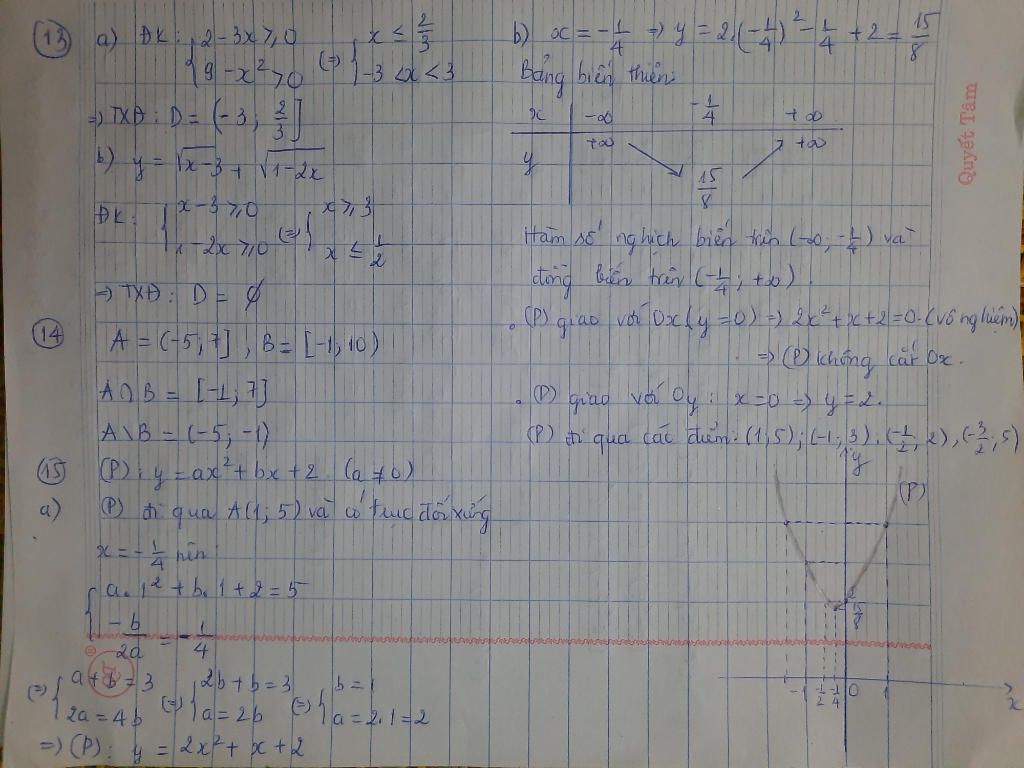 13 a) ĐK: { 2 - 3x ⩾ 0
9 - x² > 0 (=) { x ≤ 2/3
-3 < x < 3
=) TXĐ: D = (-3; 2/3]
b) y = √x-3 + √1-2x
ĐK: { x-3 ⩾ 0
1-2x ⩾ 0 (=) { x ⩾ 3
x ≤ 1/2
=) TXĐ: D = ∅
14 A = (-5; 7], B = [-1; 10)
A∩B = [-1; 7]
A\B = (-5; -1)
15 (P): y = ax² + bx + 2 (a ≠ 0)
a) (P) đi qua A(1; 5) và có trục đối xứng
x = -1/4 nên
{ a.1² + b.1 + 2 = 5
-b/2a = -1/4
(=) { a + b = 3
2a = 4b (=) { 2b + b = 3
a = 2b (=) { b = 1
a = 2.1 = 2
=) (P): y = 2x² + x + 2
b) x = -1/4 =) y = 2.(-1/4)² - 1/4 + 2 = 15/8
Bảng biến thiên:
x -∞ -1/4 +∞
y +∞ 15/8 +∞
Hàm số nghịch biến trên (-∞; -1/4) và
đồng biến trên (-1/4; +∞)
. (P) giao với Ox (y = 0) =) 2x² + x + 2 = 0. (vô nghiệm)
=) (P) không cắt Ox.
. (P) giao với Oy: x = 0 =) y = 2.
(P) đi qua các điểm: (1; 5); (-1; 3); (-1/2, 2), (-3/2, 5)
y
(P)
2
15/8
-1 -1/2 -1/4 0 1 x
Quyết Tâm